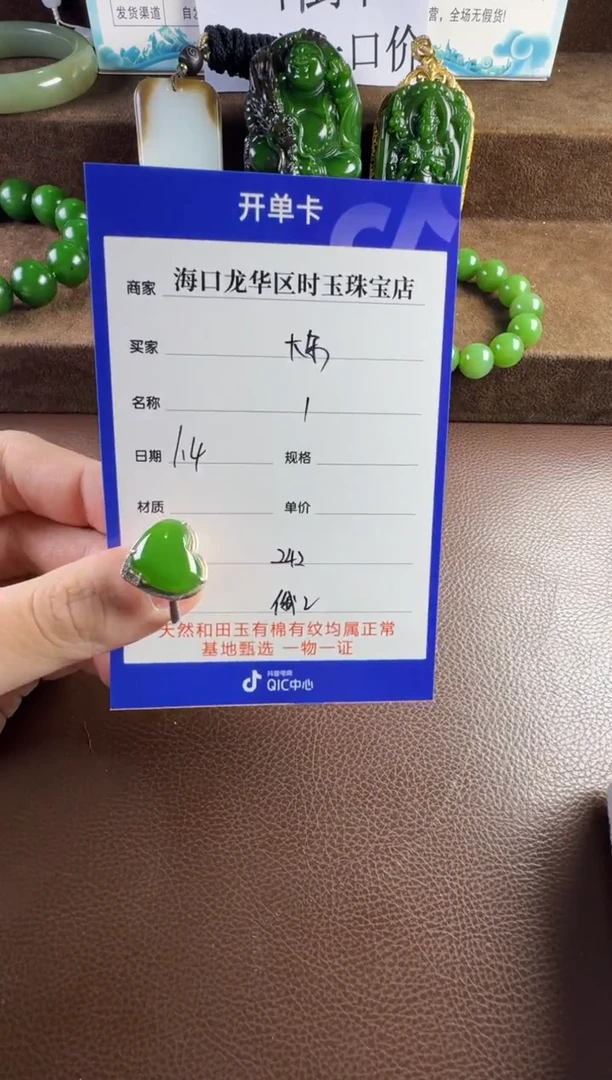 发货渠道
营，全场无假货!
口价
开单卡
商家 海口龙华区时玉珠宝店
买家 大东
名称 1
日期 1.4 规格
材质 单价
242
俄2
天然和田玉有棉有纹均属正常
基地甄选 一物一证
抖音电商
QIC中心